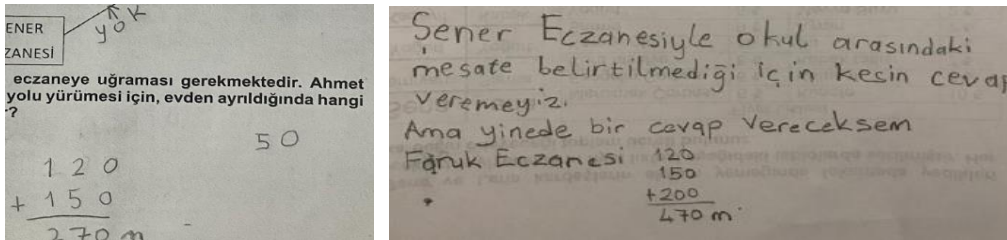 ENER
ZANESİ
yok
eczaneye uğraması gerekmektedir. Ahmet
yolu yürümesi için, evden ayrıldığında hangi
?
50
120
+ 150
270 m
Şener Eczanesiyle okul arasındaki
mesafe belirtilmediği için kesin cevap
veremeyiz.
Ama yinede bir cavap vereceksem
Faruk Eczanesi 120
150
+200
470 m